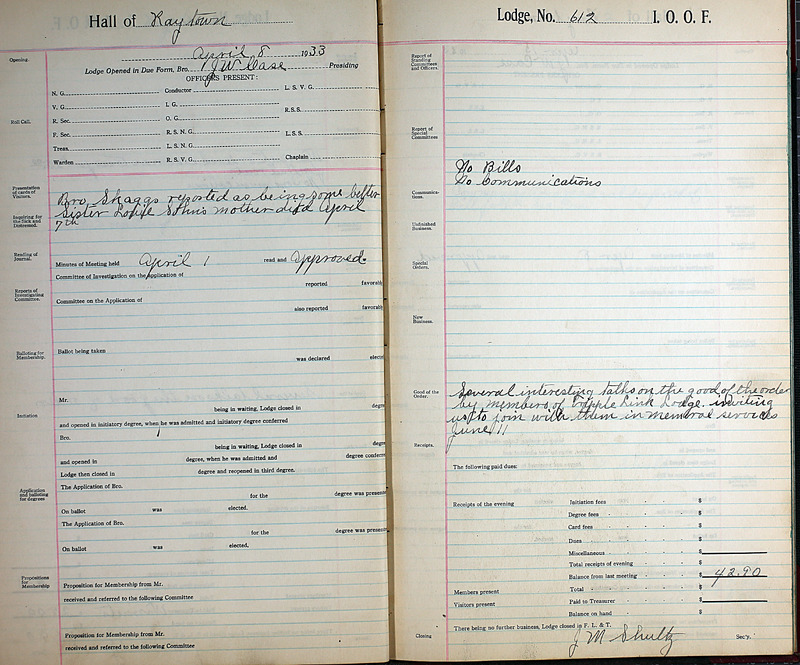 Hall of Raytown
Opening.
April 8 1933
Lodge Opened in Due Form, Bro. J W Case Presiding
OFFICERS PRESENT:
Roll Call.
N. G. Conductor L. S. V. G.
V. G. I. G.
R. Sec. O. G. R.S.S.
F. Sec. R. S. N. G. L.S.S.
Treas. L. S. N. G.
Warden R. S. V. G. Chaplain
Presentation of cards of Visitors.
Inquiring for the Sick and Distressed.
Bro. Skaggs reported as being some better
Sister mother died April
7th
Reading of Journal.
Minutes of Meeting held April 1 read and approved.
Committee of Investigation on the Application of
reported favorabl
Reports of Investigating Committee.
Committee on the Application of
also reported favorabl
Balloting for Membership.
Ballot being taken
was declared elect
Initiation
Mr.
being in waiting, Lodge closed in degre
and opened in initiatory degree, when he was admitted and initiatory degree conferred
Bro.
being in waiting, Lodge closed in degre
and opened in degree, when he was admitted and degree conferre
Lodge then closed in degree and reopened in third degree.
Application and balloting for degrees
The Application of Bro.
for the degree was presen
On ballot was elected.
The Application of Bro.
for the degree was presen
On ballot was elected.
Propositions for Membership
Proposition for Membership from Mr.
received and referred to the following Committee
Proposition for Membership from Mr.
received and referred to the following Committee
Lodge, No. 612 I. O. O. F.
Report of Standing Committees and Officers.
Report of Special Committees
No Bills
No Communications
Communications.
Unfinished Business.
Special Orders.
New Business.
Good of the Order.
Several interesting talks on the good of the order
by members of Tripple Link Lodge. inviting
us to join with them in memoral services
June 11
Receipts.
The following paid dues:
Receipts of the evening Initiation fees $
Degree fees $
Card fees $
Dues $
Miscellaneous $
Total receipts of evening $
Balance from last meeting $ 42.90
Members present Total $
Visitors present Paid to Treasurer $
Balance on hand $
Closing
There being no further business, Lodge closed in F. L. & T.
J M Shultz Sec'y.